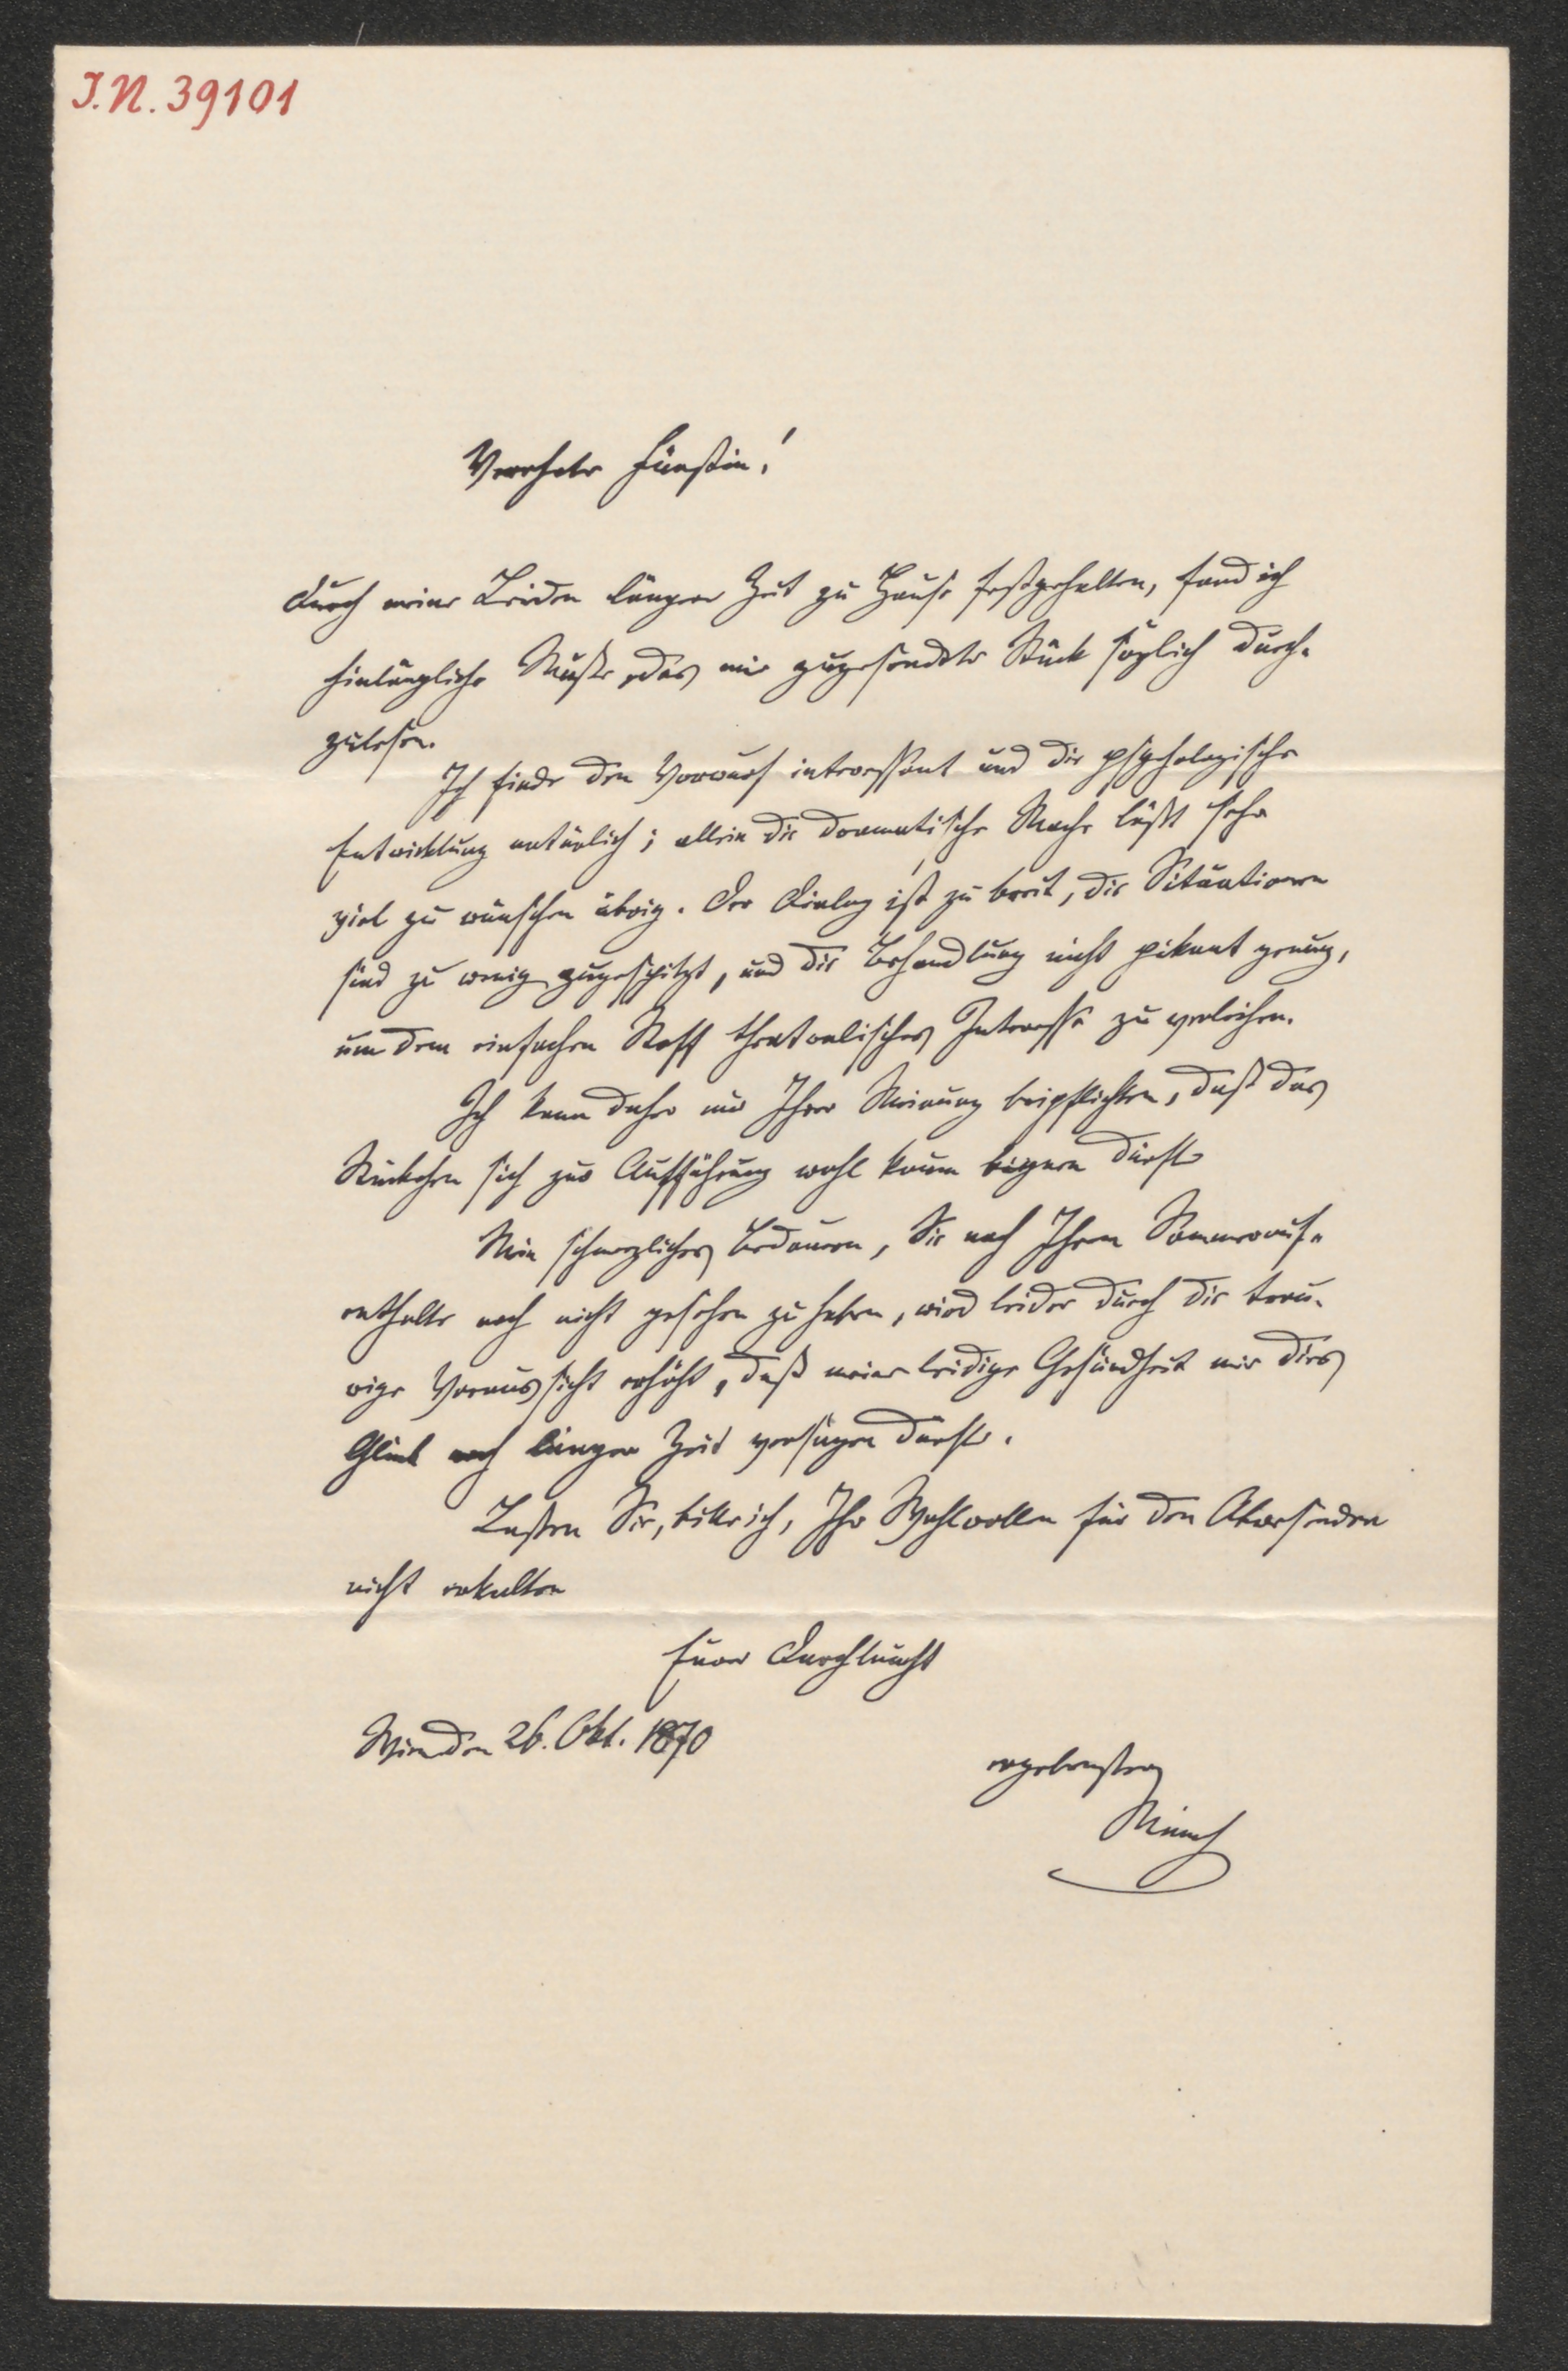 I.N. 39101
Verehrte Fürstin!
Durch meine Leiden länger Zeit zu Hause festgehalten, fand ich
hinlängliche Muße, das mir zugesendete Stück sogleich durch-
zulesen.
Ich finde den Vorwurf interessant und die psychologische
Entwicklung natürlich; allein die dramatische Mache läßt sehr
viel zu wünschen übrig. Der Dialog ist zu breit, die Situationen
sind zu wenig zugespitzt, und die Behandlung nicht pikant genug,
um dem einfachen Stoff theatralisches Interesse zu verleihen.
Ich kann daher nur Ihrer Meinung beipflichten, daß das
Stückchen sich zur Aufführung wohl kaum eignen dürfte
Mein schmerzliches Bedauern, Sie nach Ihrem Sommerauf-
enthalte noch nicht gesehen zu haben, wird leider durch die trau-
rige Voraussicht erhöht, daß meine leidige Gesundheit mir dies
Glück noch länger Zeit versagen dürfte.
Laßen Sie, bitte ich, Ihr Wohlwollen für den Abwesenden
nicht erkalten
Euer Durchlaucht
Wien den 26. Okt. 1870
ergebenster
Münch